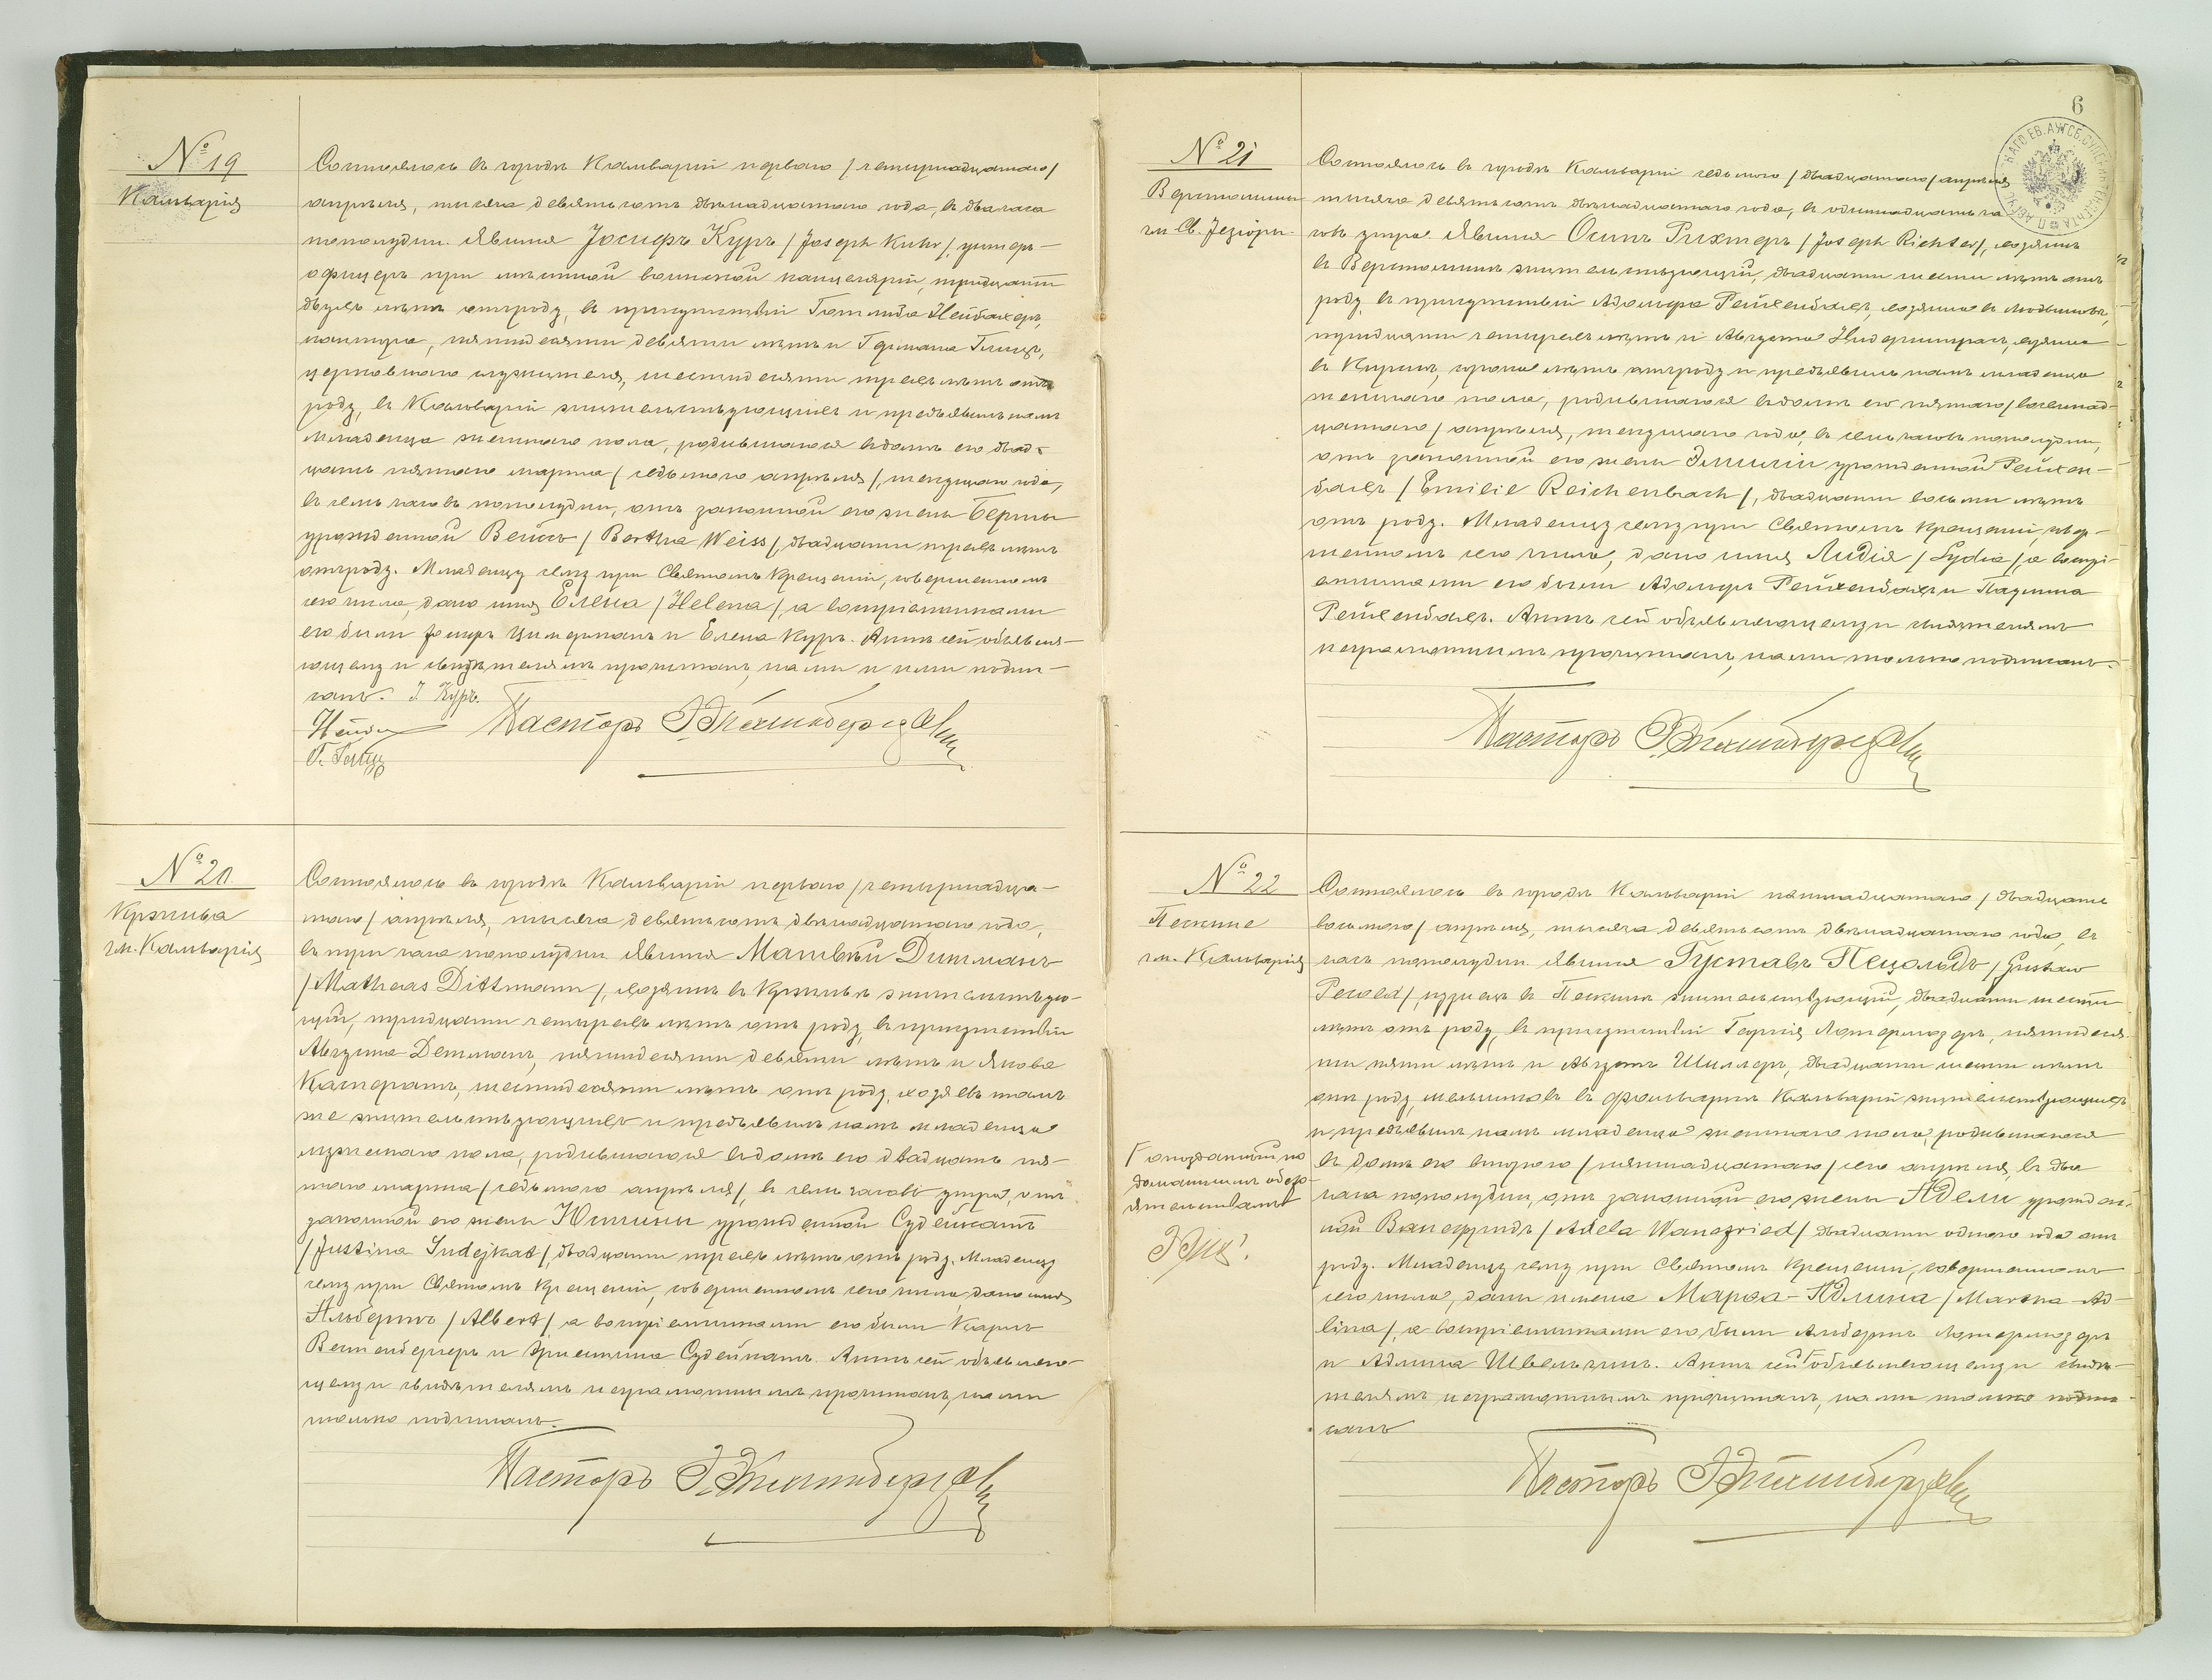 № 19
Кальварія
Состоялось въ городѣ Кальваріи перваго /четырнадцатаго/
апрѣля, тысяча девятьсотъ двѣнадцатаго года, въ два часа
пополудни. Явился Іосифъ Куръ /Joseph Kuhr/, унтеръ-
офицеръ при мѣстной воинской канцеляріи, тридцати
двухъ лѣтъ отъ роду, въ присутствіи Готлиба Нейбахеръ,
кантора, пятидесяти девяти лѣтъ и Германа
церковнаго служителя, шестидесяти трехъ лѣтъ отъ
роду, въ Кальваріи жительствующихъ и предъявилъ намъ
младенца женскаго пола, родившагося въ домѣ его двад-
цать пятаго марта /седьмого апрѣля/, текущаго года,
въ семь часовъ пополудни, отъ законной его жены Берты
урожденной Вейсъ /Bertha Weiss/, двадцати трехъ лѣтъ
отъ роду. Младенцу сему при Святомъ Крещеніи, совершенномъ
сего числа, дано имя Елена /Helena/, а воспріемниками
его были Іосифъ Цимерманъ и Елена Куръ. Актъ сей объявля-
ющему и свидѣтелямъ прочитанъ, нами и ими подпи-
санъ. І Куръ.
Пасторъ
№ 20
гм. Кальварія
Состоялось въ городѣ Кальваріи перваго /четырнадца-
таго/ апрѣля, тысяча девятьсотъ двѣнадцатаго года,
въ три часа пополудни. Явился Матвѣй Дитманъ
/Matheas Dittmann/, хозяинъ въ жительствую-
щій, тридцати четырехъ лѣтъ отъ роду, въ присутствіи
Августа Детманъ, пятидесяти девяти лѣтъ и Якова
Катератъ, шестидесяти лѣтъ отъ роду, хозяевъ тамъ
же жительствующихъ и предъявилъ намъ младенца
мужескаго пола, родившагося въ домѣ его двадцать пя-
таго марта /седьмого апрѣля/, въ семь часовъ утра, отъ
законной его жены Юстины урожденной Судейкатъ
/Justina Sudejkat/, двадцати трехъ лѣтъ отъ роду. Младенцу
сему при Святомъ Крещеніи, совершенномъ сего числа, дано имя
Альбертъ /Albert/, а воспріемниками его были Карлъ
и Судейкатъ. Актъ сей объявляю-
щему и свидѣтелямъ неграмотнымъ прочитанъ, нами
только подписанъ.
Пасторъ
6
№ 21
гм. Св. Језіоры.
Состоялось въ городѣ Кальваріи седьмого /двадцатаго/ апрѣля
тысяча девятьсотъ двѣнадцатаго года, въ одиннадцать ча-
совъ утра. Явился Осипъ Рихтеръ /Joseph Richter/, хозяинъ
въ жительствующій, двадцати шести лѣтъ отъ
роду, въ присутствіи Адольфа Рейхенбахъ, хозяина въ
тридцати четырехъ лѣтъ и Августа хозяина
въ сорока лѣтъ отъ роду и предъявилъ намъ младенца
женскаго пола, родившагося въ домѣ его пятаго /восемнад-
цатаго/ апрѣля, текущаго года, въ семь часовъ пополудни,
отъ законной его жены Эмиліи урожденной Рейхен-
бахъ /Emilie Reichenbach/, двадцати восьми лѣтъ
отъ роду. Младенцу сему при Святомъ Крещеніи, совер-
шенномъ сего числа, дано имя Лидія /Lydia/, а воспрі-
емниками его были Адольфъ Рейхенбахъ и Паулина
Рейхенбахъ. Актъ сей объявляющему и свидѣтелямъ
неграмотнымъ прочитанъ, нами только подписанъ.
Пасторъ
№ 22
гм. Кальварія
Состоялось въ городѣ Кальваріи пятнадцатаго /двадцать
восьмого/ апрѣля, тысяча девятьсотъ двѣнадцатаго года, въ
часъ пополудни. Явился Густавъ Пецольдъ /Gustaw
въ жительствующій, двадцати шести
лѣтъ отъ роду, въ присутствіи Георгія пятидеся-
ти пяти лѣтъ и Августа Шиллеръ, двадцати шести лѣтъ
отъ роду, мельниковъ въ фольваркѣ Кальваріи жительствующихъ
и предъявилъ намъ младенца женскаго пола, родившагося
въ домѣ его второго /пятнадцатаго/ сего апрѣля, въ два
часа пополудни, отъ законной его жены Адели урожден-
ной Ванефридъ /Adela Wanefried/ двадцати одного года отъ
роду. Младенцу сему при Святомъ Крещеніи, совершенномъ
сего числа, даны имена Марѳа-Адлина /Martha-Ad-
lina/, а воспріемниками его были Альбертъ
и Адлина Актъ сей объявляющему и свидѣ-
телямъ неграмотнымъ прочитанъ, нами только подпи-
санъ
опозданный по
домашнимъ обсто-
ятельствамъ
Пасторъ